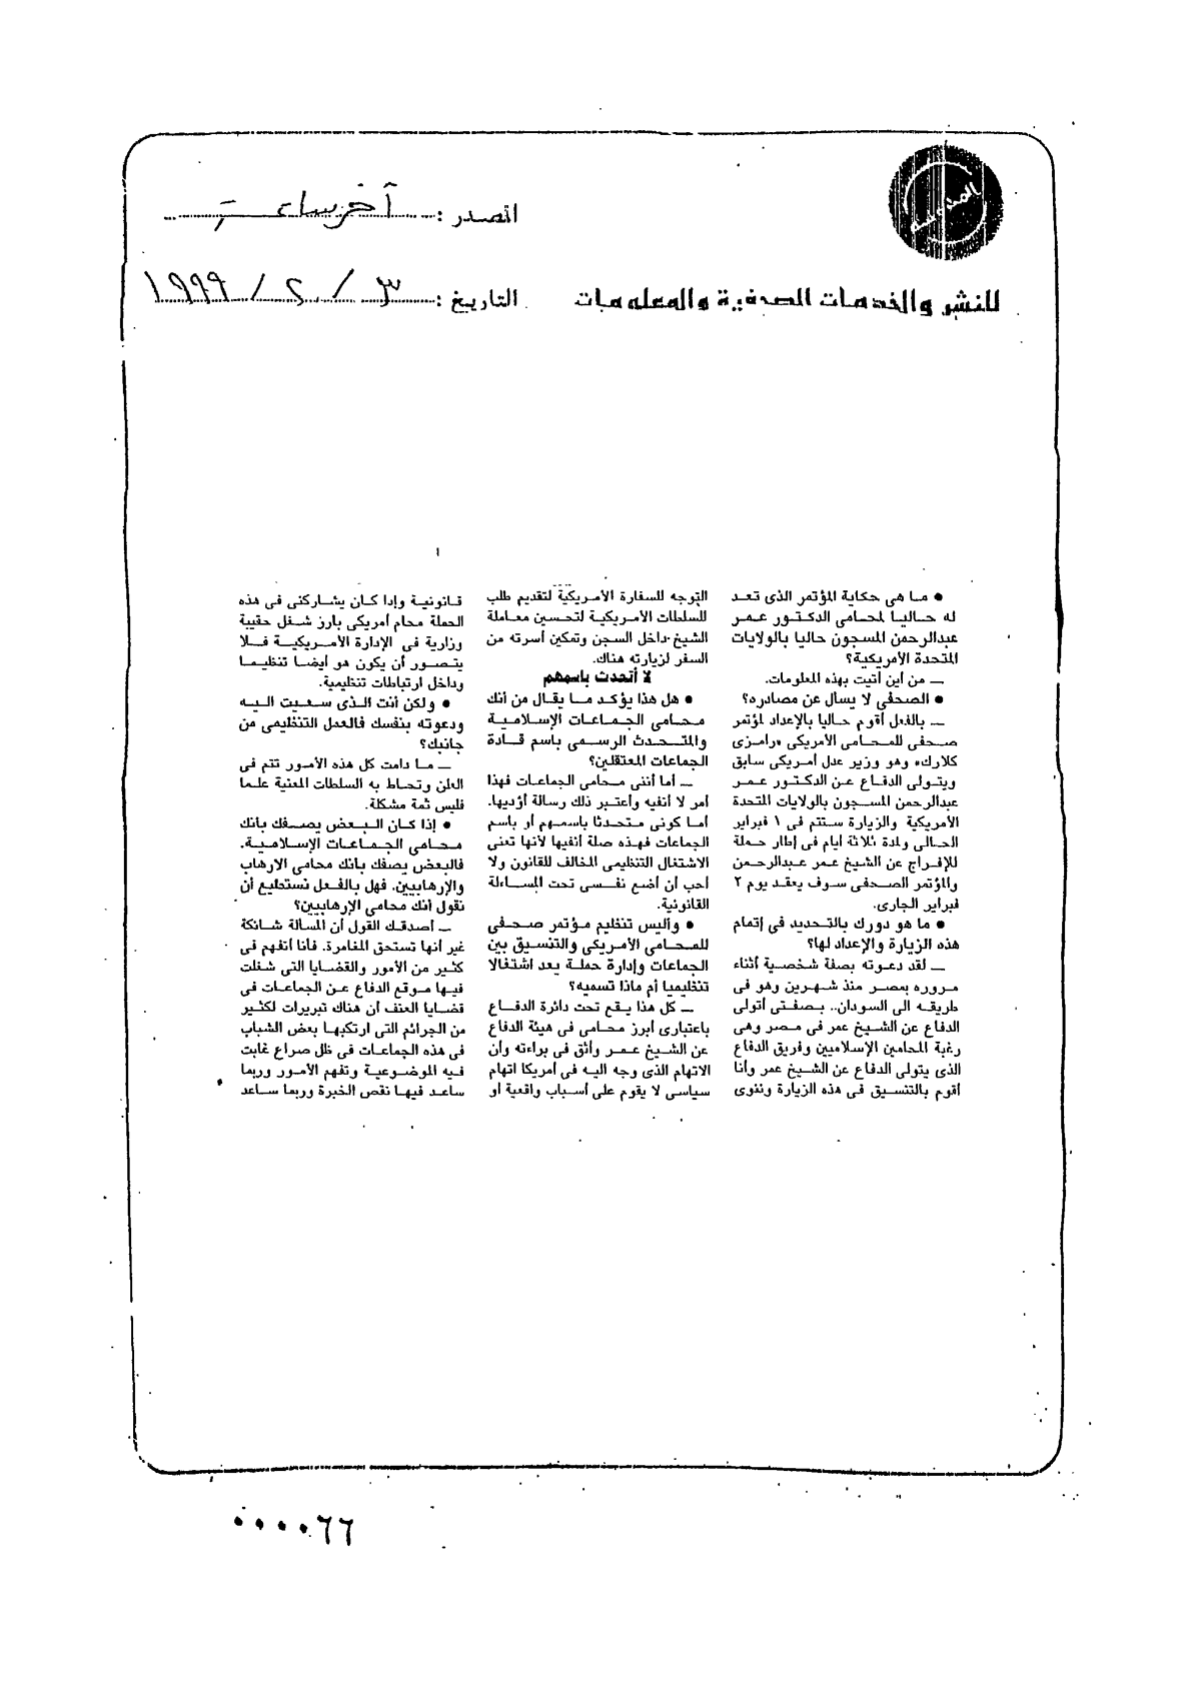 المصدر : آخر ساعة
للنشر والخدمات الصحفية والمعلومات
التاريخ : ٣ / ٢ / ١٩٩٩
● ما هى حكاية المؤتمر الذى تعد
له حاليا لمحامى الدكتور عمر
عبدالرحمن المسجون حاليا بالولايات
المتحدة الأمريكية؟
ــ من أين أتيت بهذه المعلومات.
● الصحفى لا يسأل عن مصادره؟
ــ بالفعل أقوم حاليا بالإعداد لمؤتمر
صحفى للمحامى الأمريكى «رامزى
كلارك» وهو وزير عدل أمريكى سابق
ويتولى الدفاع عن الدكتور عمر
عبدالرحمن المسجون بالولايات المتحدة
الأمريكية والزيارة ستتم فى ١ فبراير
الحالى ولمدة ثلاثة أيام فى إطار حملة
للإفراج عن الشيخ عمر عبدالرحمن
والمؤتمر الصحفى سوف يعقد يوم ٢
فبراير الجارى.
● ما هو دورك بالتحديد فى إتمام
هذه الزيارة والإعداد لها؟
ــ لقد دعوته بصفة شخصية أثناء
مروره بمصر منذ شهرين وهو فى
طريقه الى السودان.. بصفتى أتولى
الدفاع عن الشيخ عمر فى مصر وهى
رغبة المحامين الإسلاميين وفريق الدفاع
الذى يتولى الدفاع عن الشيخ عمر وأنا
أقوم بالتنسيق فى هذه الزيارة وننوى
التوجه للسفارة الأمريكية لتقديم طلب
للسلطات الأمريكية لتحسين معاملة
الشيخ داخل السجن وتمكين أسرته من
السفر لزيارته هناك.
لا أتحدث باسمهم
● هل هذا يؤكد ما يقال من أنك
محامى الجماعات الإسلامية
والمتحدث الرسمى باسم قادة
الجماعات المعتقلين؟
ــ أما أننى محامى الجماعات فهذا
أمر لا أنفيه وأعتبر ذلك رسالة أؤديها.
أما كونى متحدثا باسمهم أو باسم
الجماعات فهذه صلة أنفيها لأنها تعنى
الاشتغال التنظيمى المخالف للقانون ولا
أحب أن أضع نفسى تحت المساءلة
القانونية.
● وأليس تنظيم مؤتمر صحفى
للمحامى الأمريكى والتنسيق بين
الجماعات وإدارة حملة يعد اشتغالا
تنظيميا أم ماذا تسميه؟
ــ كل هذا يقع تحت دائرة الدفاع
باعتبارى أبرز محامى فى هيئة الدفاع
عن الشيخ عمر وأثق فى براءته وأن
الاتهام الذى وجه اليه فى أمريكا اتهام
سياسى لا يقوم على أسباب واقعية أو
قانونية وإذا كان يشاركنى فى هذه
الحملة محام أمريكى بارز شغل حقيبة
وزارية فى الإدارة الأمريكية فلا
يتصور أن يكون هو أيضا تنظيما
وداخل ارتباطات تنظيمية.
● ولكن أنت الذى سعيت اليه
ودعوته بنفسك فالعمل التنظيمى من
جانبك؟
ــ ما دامت كل هذه الأمور تتم فى
العلن وتحاط به السلطات المعنية علما
فليس ثمة مشكلة.
● إذا كان البعض يصفك بانك
محامى الجماعات الإسلامية.
فالبعض يصفك بانك محامى الارهاب
والإرهابيين. فهل بالفعل نستطيع أن
نقول أنك محامى الإرهابيين؟
ــ أصدقك القول أن المسألة شائكة
غير أنها تستحق المغامرة. فأنا أتفهم فى
كثير من الأمور والقضايا التى شغلت
فيها موقع الدفاع عن الجماعات فى
قضايا العنف أن هناك تبريرات لكثير
من الجرائم التى ارتكبها بعض الشباب
فى هذه الجماعات فى ظل صراع غابت
فيه الموضوعية وتفهم الأمور وربما
ساعد فيها نقص الخبرة وربما ساعد
٠٠٠٠٦٦